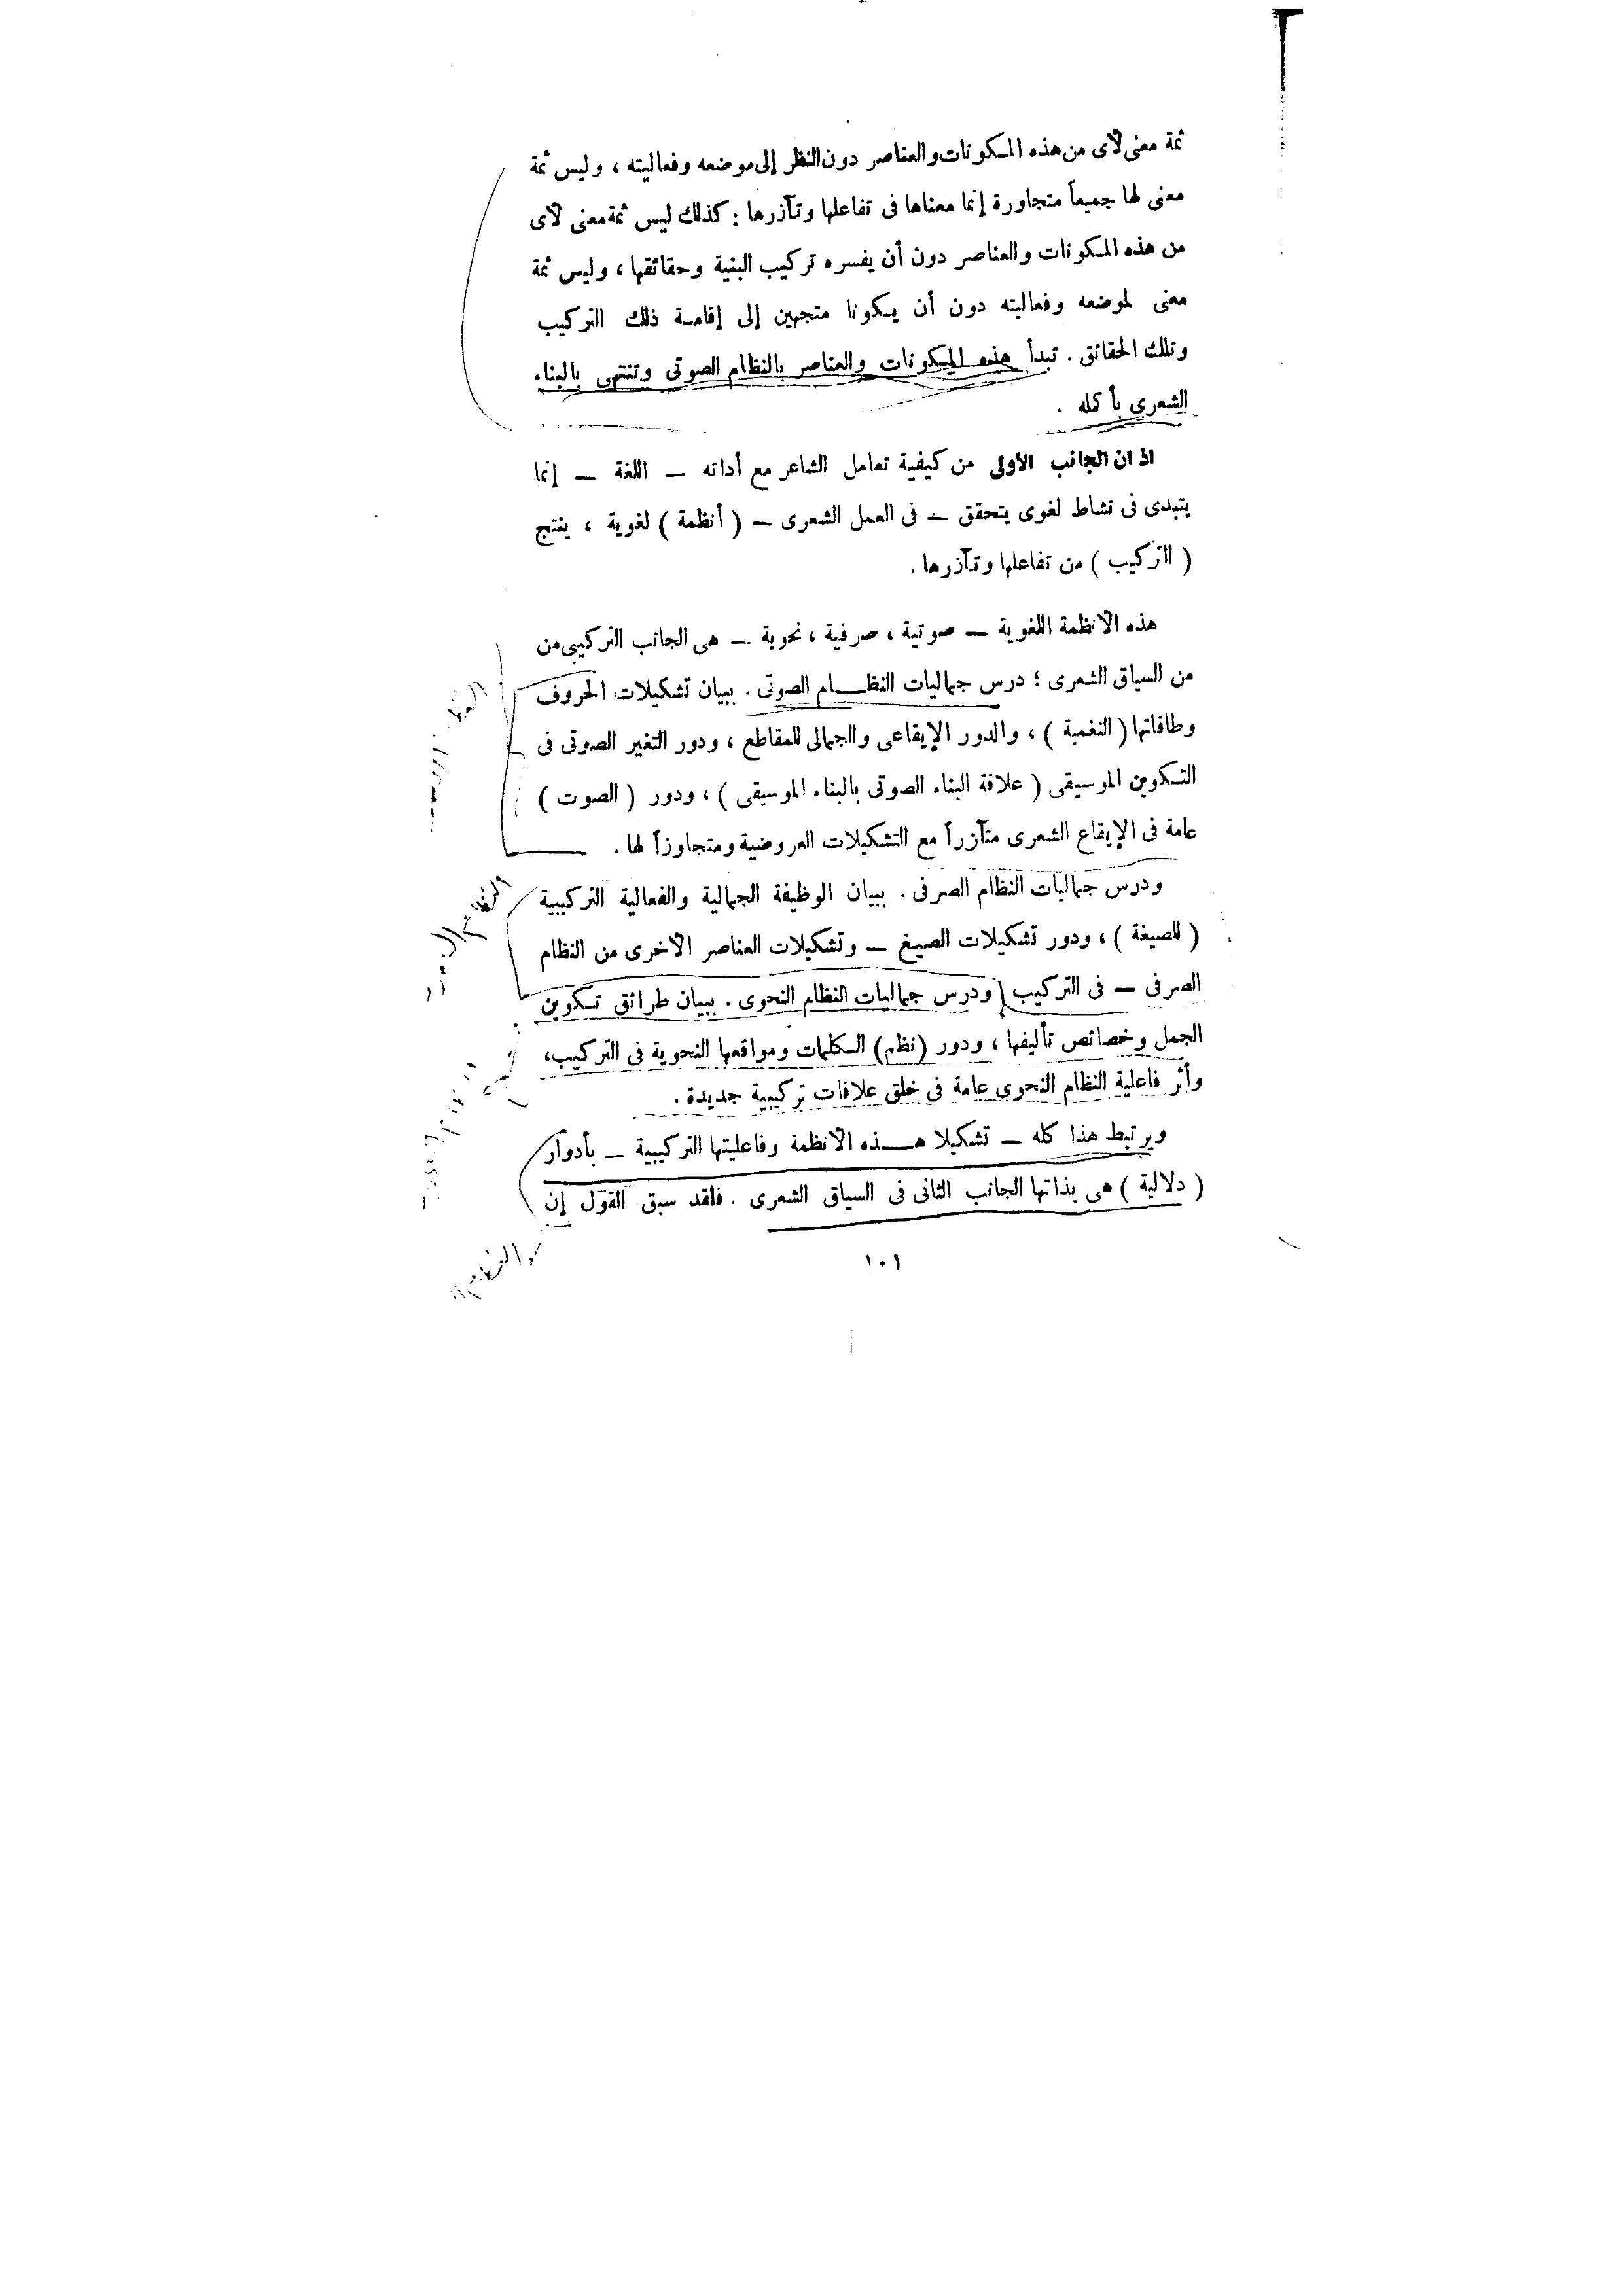 ثمة معنى لأى من هذه المكونات والعناصر دون النظر إلى موضعه وفعاليته ، وليس ثمة
معنى لها جميعاً متجاورة إنما معناها فى تفاعلها وتآزرها : كذلك ليس ثمة معنى لأى
من هذه المكونات والعناصر دون أن يفسره تركيب البنية وحقائقها ، وليس ثمة
معنى لموضعه وفعاليته دون أن يكونا متجهين إلى إقامة ذلك التركيب
وتلك الحقائق . تبدأ هذه المكونات والعناصر بالنظام الصوتى وتنتهى بالبناء
الشعرى بأكمله .
اذ ان الجانب الأولى من كيفية تعامل الشاعر مع أداته — اللغة — إنما
يتبدى فى نشاط لغوى يتحقق — فى العمل الشعرى — ( أنظمة ) لغوية ، ينتج
( التركيب ) من تفاعلها وتآزرها .
هذه الانظمة اللغوية — صوتية ، صرفية ، نحوية — هى الجانب التركيبى من
من السياق الشعرى ؛ درس جماليات النظام الصوتى . ببيان تشكيلات الحروف
وطاقاتها ( النغمية ) ، والدور الإيقاعى والجمالى للمقاطع ، ودور التغير الصوتى فى
التكوين الموسيقى ( علاقة البناء الصوتى بالبناء الموسيقى ) ، ودور ( الصوت )
عامة فى الإيقاع الشعرى متآزراً مع التشكيلات العروضية ومتجاوزاً لها .
ودرس جماليات النظام الصرفى . ببيان الوظيفة الجمالية والفعالية التركيبية
( للصيغة ) ، ودور تشكيلات الصيغ — وتشكيلات العناصر الاخرى من النظام
الصرفى — فى التركيب ودرس جماليات النظام النحوى . ببيان طرائق تكوين
الجمل وخصائص تأليفها ، ودور (نظم) الكلمات ومواقعها النحوية فى التركيب،
وأثر فاعلية النظام النحوى عامة فى خلق علاقات تركيبية جديدة .
ويرتبط هذا كله — تشكيلا هذه الانظمة وفاعليتها التركيبية — بأدوار
( دلالية ) هى بذاتها الجانب الثانى فى السياق الشعرى . فلقد سبق القول إن
١٠١